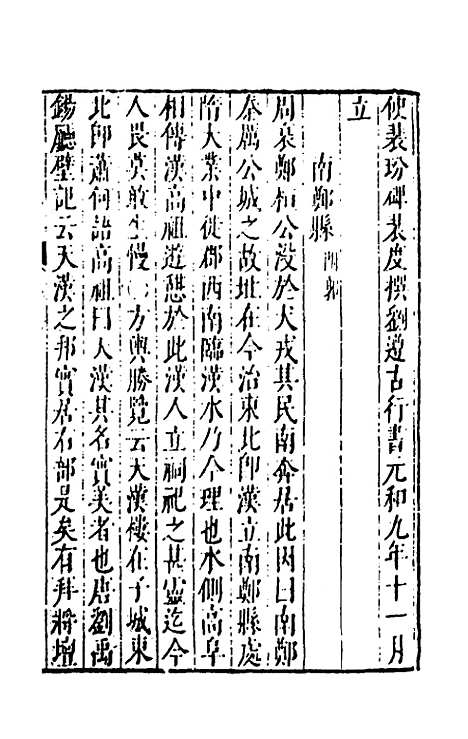 使裴玢碑裴度撰劉遵古行書元和九年十一月
立
南鄭縣附郭
周衰鄭桓公没於犬戎其民南奔居此因曰南鄭
秦厲公城之故址在今治東北卽漢立南鄭縣處
隋大業中徙郡西南臨漢水乃今理也水側高阜
相傳漢高祖遊憇於此漢人立祠祀之甚靈迄今
人畏莫敢生慢○方輿勝覽云天漢樓在子城東
北卽蕭何語高祖曰天漢其名實美者也唐劉禹
錫廳壁記云天漢之邦實居右部是矣有拜將壇